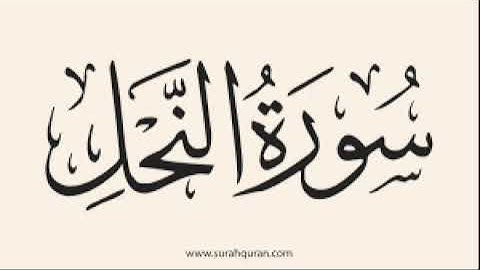 سُورَةُ النَّحْلِ
www.surahquran.com